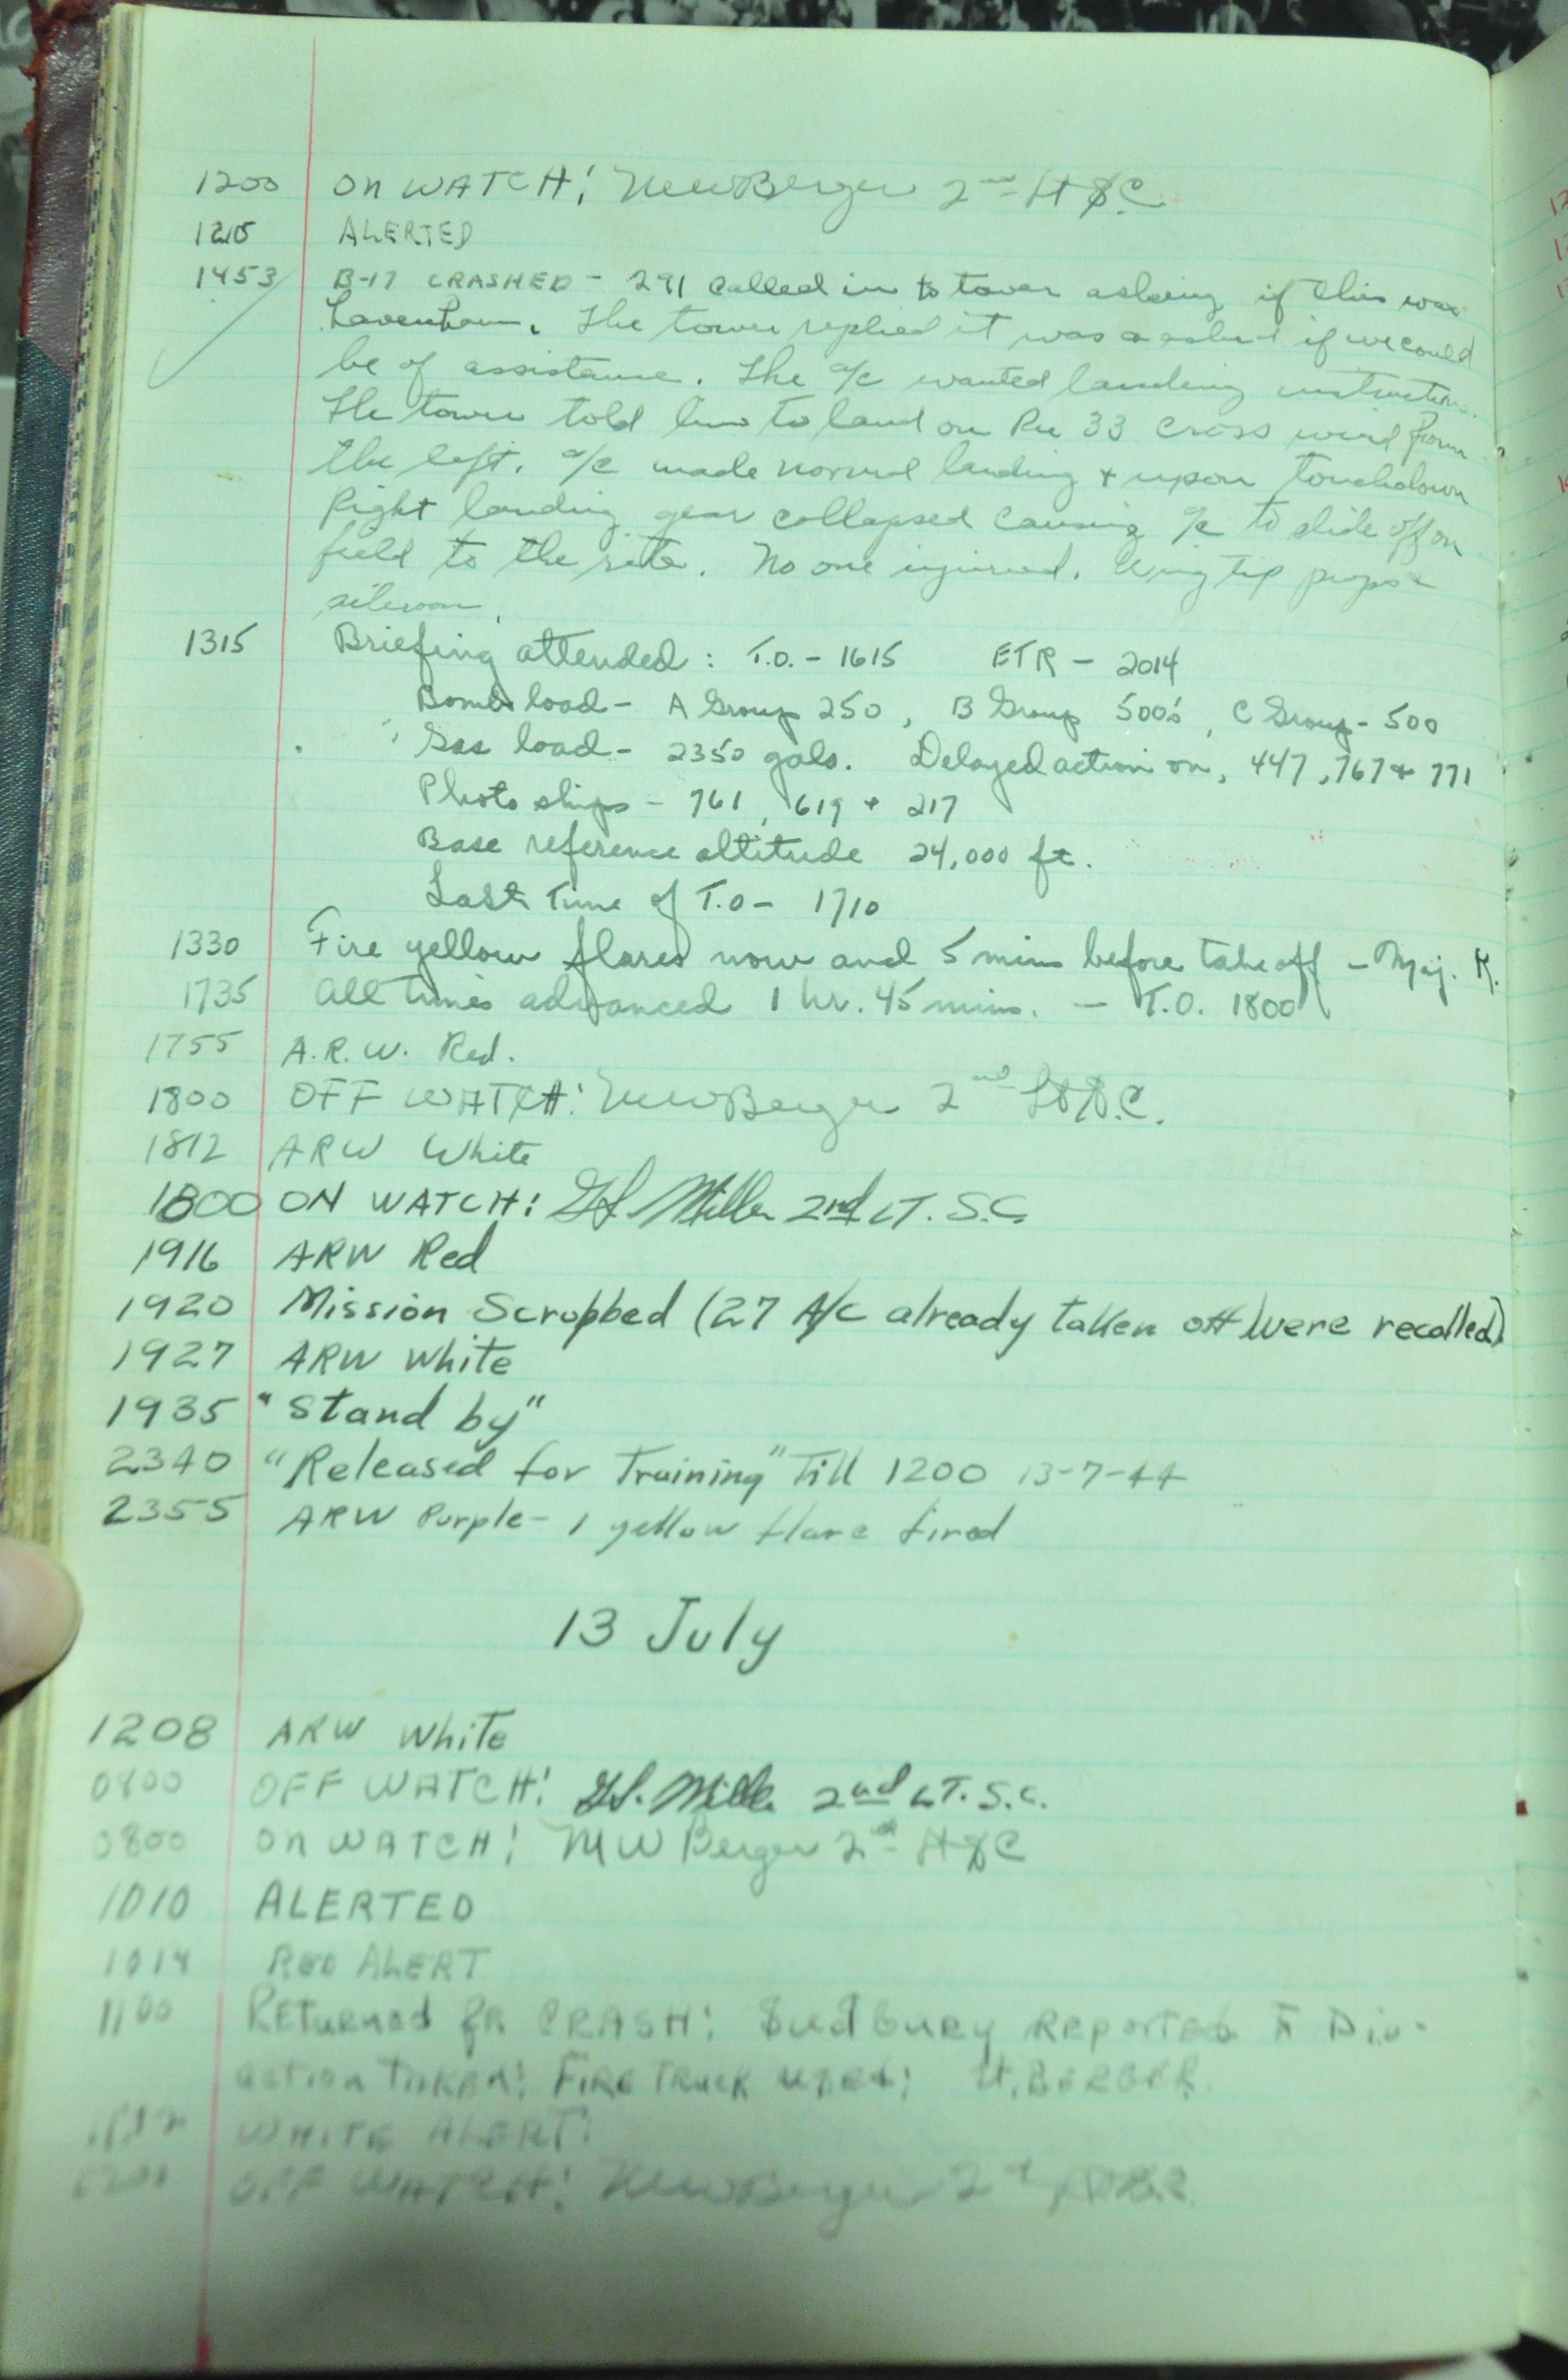 1200 ON WATCH: MWBerger 2nd Lt S.C.
1215 ALERTED
1453 B-17 CRASHED - 291 called in to tower asking if this was
Lavenham. The tower replied it was & asked if we could
be of assistance. The a/c wanted landing instructions.
The tower told him to land on Rw 33 cross wind from
the left. a/c made normal landing & upon touchdown
Right landing gear collapsed causing a/c to slide off on
field to the rite. No one injured. Wing tip props &
aileron.
1315 Briefing attended: T.O. - 1615 ETR - 2014
Bomb load - A Group 250, B Group 500's, C Group - 500
Gas load - 2350 gals. Delayed action on, 447, 767 & 771
Photo ships - 761, 619 + 217
Base reference altitude 24,000 ft.
Last Time of T.O - 1710
1330 Fire yellow flares now and 5 mins before takeoff - Maj. K.
1735 All times advanced 1 hr. 45 mins. - T.O. 1800
1755 A.R.W. Red.
1800 OFF WATCH: MWBerger 2nd Lt S.C.
1812 ARW White
1800 ON WATCH: GL Miller 2nd LT. S.C.
1916 ARW Red
1920 Mission Scrubbed (27 A/C already taken off were recalled)
1927 ARW White
1935 "Stand by"
2340 "Released for Training" Till 1200 13-7-44
2355 ARW Purple - 1 yellow flare fired
13 July
1208 ARW White
0800 OFF WATCH: GL. Miller 2nd LT. S.C.
0800 ON WATCH: MW Berger 2nd Lt S C
1010 ALERTED
1014 RED ALERT
1100 Returned fr CRASH: Sudbury Reported to Div.
action TAKEN: FIRE TRUCK used; Lt. BERGER.
WHITE ALERT:
OFF WATCH: MWBerger 2nd